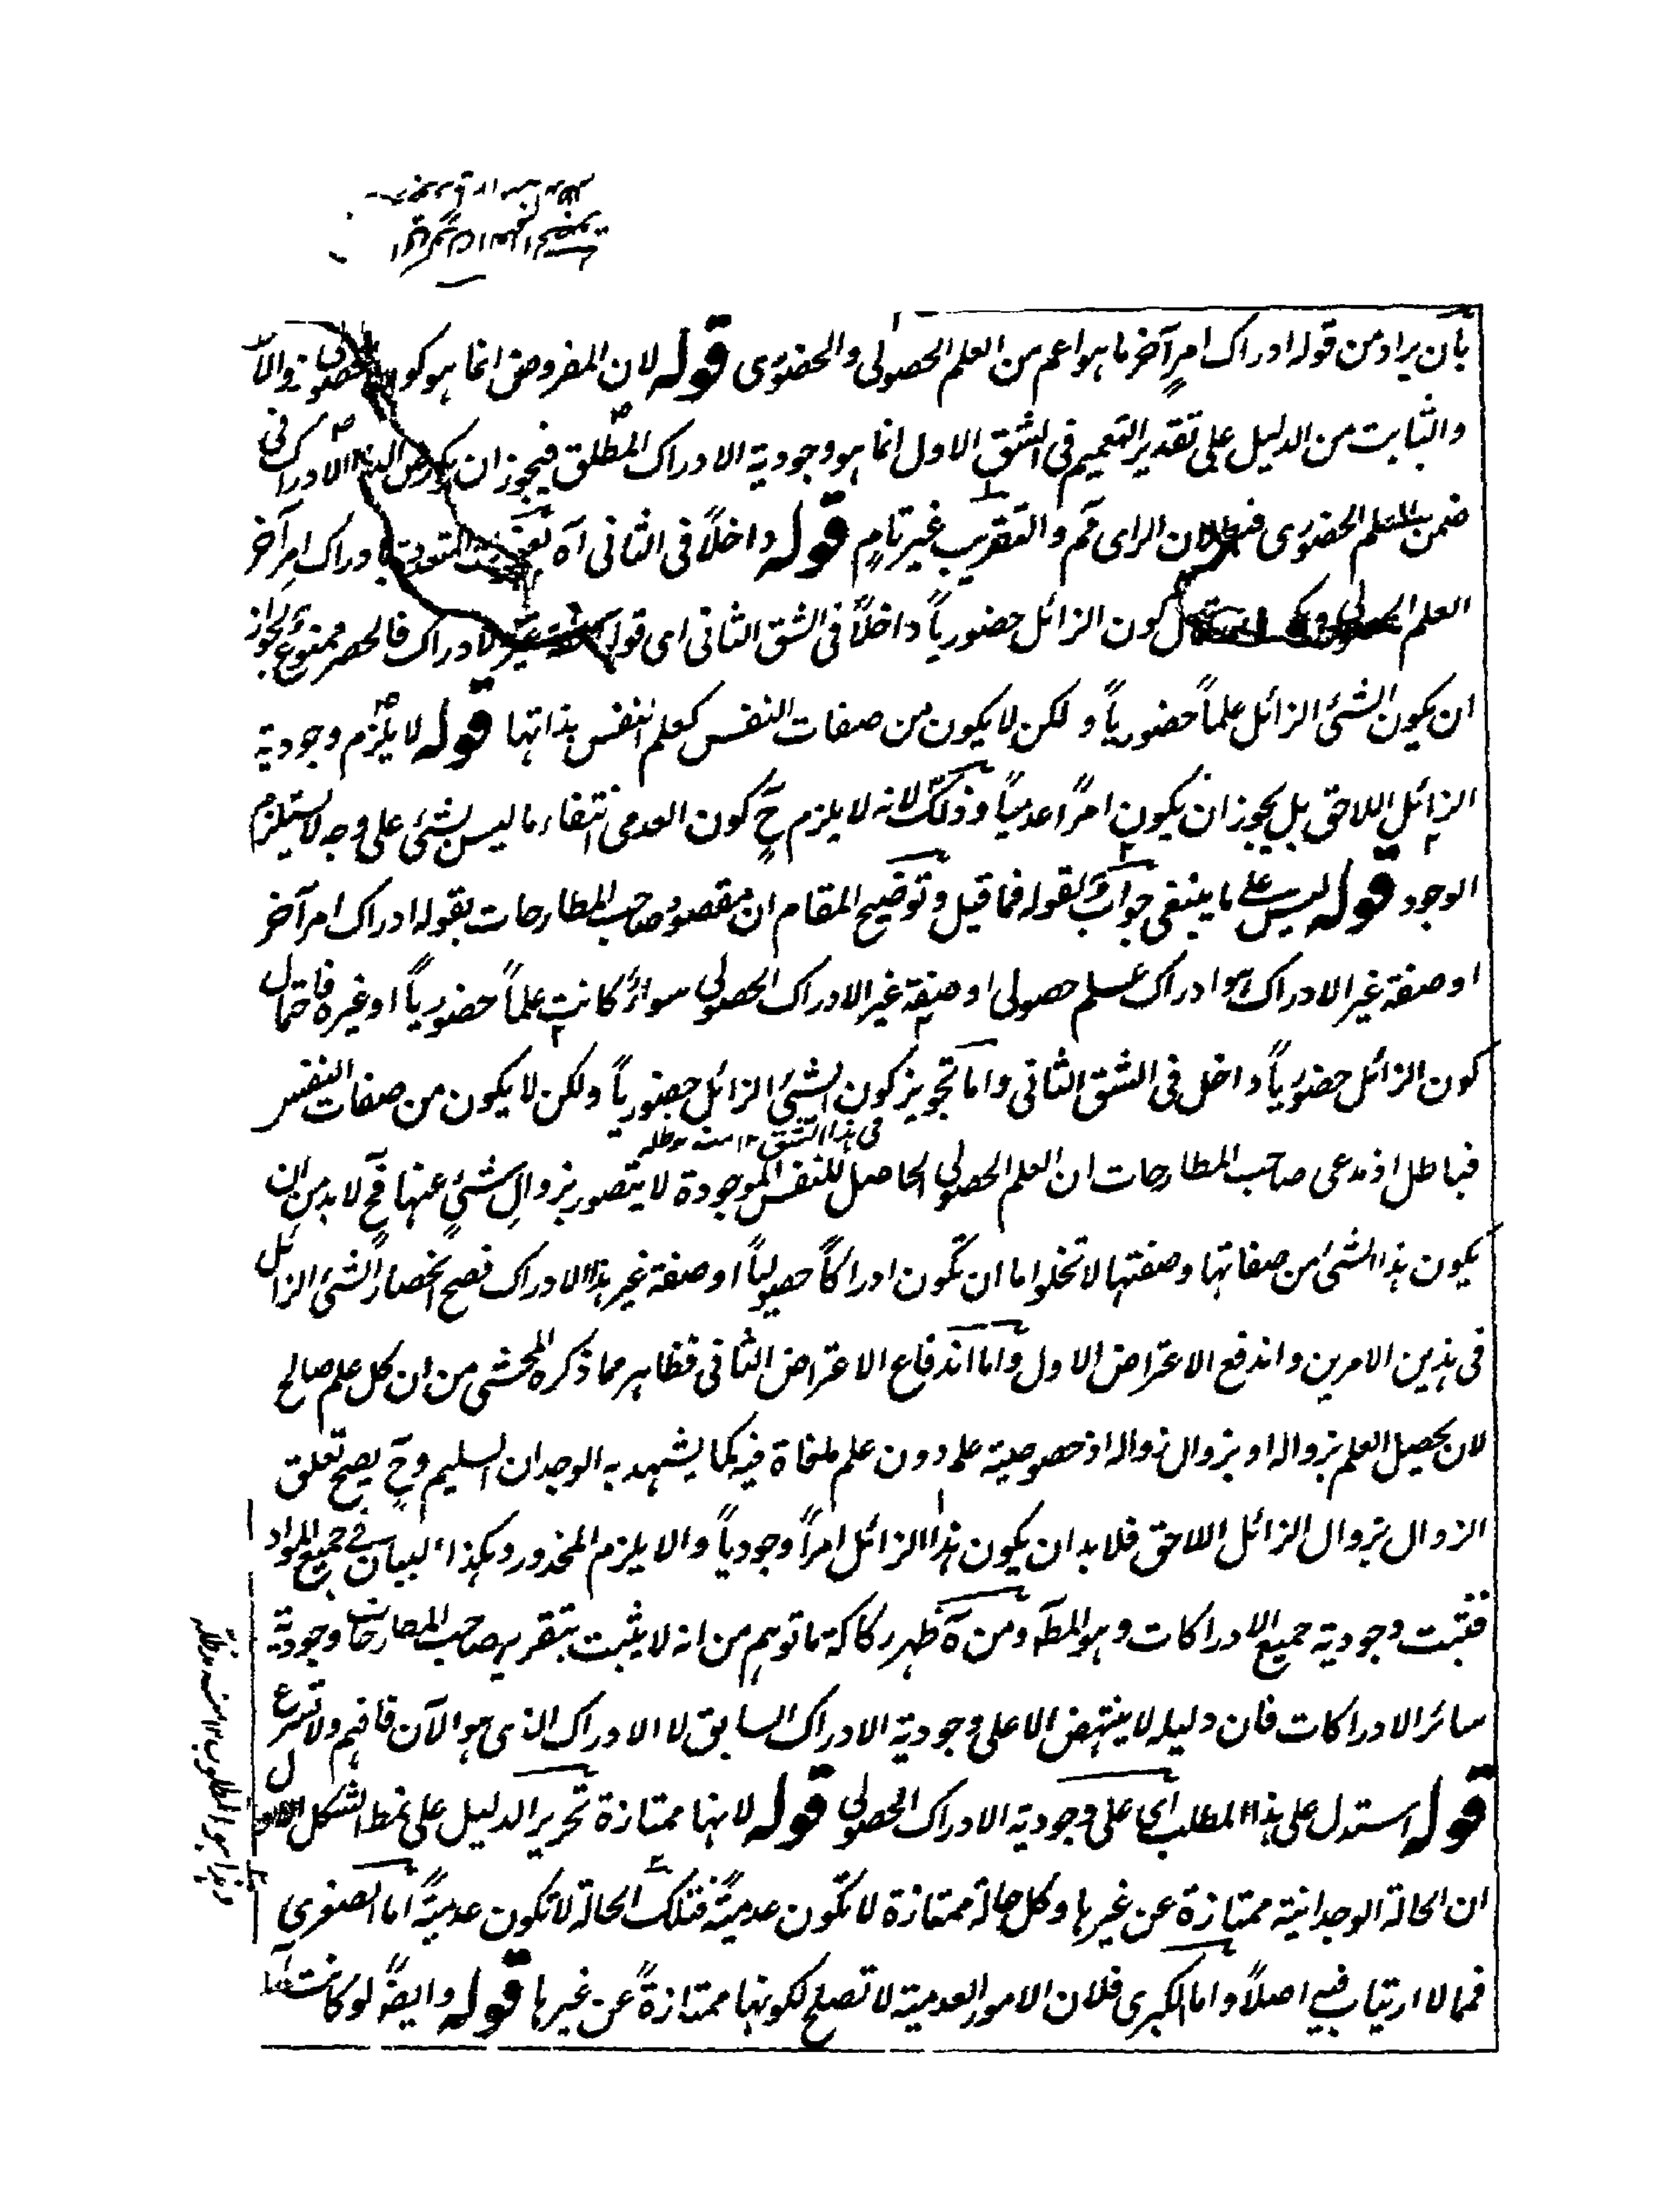 بأن يراد من قوله ادراك امرٍ آخر ما هو اعم من العلم الحصولى والحضورى قوله لان المفروض انما هو كون الحصولى زوالاً
والثابت من الدليل على تقدير التعميم فى الشق الاول انما هو وجودية الادراك المطلق فيجوز ان يكون الادراك فى
ضمن العلم الحضورى الراى تم والتقريب غير تامٍ قوله داخلاً فى الثانى آه بادراك امرٍ آخر
العلم الحصولى كون الزائل حضورياً داخلاً فى الشق الثانى اى قوله صفة غير الادراك فالحصر ممنوع لجواز
ان يكون الشئ الزائل علماً حضورياً ولكن لا يكون من صفات النفس كعلم النفس بذاتها قوله لا يلزم وجودية
الزائل اللاحق بل يجوز ان يكون امراً عدمياً وذلك لانه لا يلزم حٍ كون العدمى انتفاء ما ليس بشئ على وجه لا يستلزم
الوجود قوله ليس على ما ينبغى جوابٌ لقوله فما قيل وتوضيح المقام ان مقصود صاحب المطارحات بقوله ادراك امر آخر
او صفة غير الادراك هو ادراك علم حصولى او صفة غير الادراك الحصولى سواءٌ كانت علماً حضورياً او غيره فاحتمال
كون الزائل حضورياً داخل فى الشق الثانى واما تجويز كون الشئ الزائل حضورياً ولكن لا يكون من صفات النفس
فى هذا الشق ١٢ منه مدظله
فباطل اذ مدعى صاحب المطارحات ان العلم الحصولى الحاصل للنفس الموجودة لا يتصور بزوالِ شئٍ عنها فحٍ لا بد من ان
يكون هذا الشئ من صفاتها وصفتها لا تخلو اما ان تكون ادراكاً حصولياً او صفة غير هذا الادراك فصح انحصار الشئ الزائل
فى هذين الامرين واندفع الاعتراض الاول واما اندفاع الاعتراض الثانى فظاهر مما ذكره المحشى من ان كل علم صالح
لان يحصل العلم بزواله او بزوال زواله اذ خصوصية علم دون علم ملغاة فيه كما يشهد به الوجدان السليم وحٍ يصح تعلق
الزوال بزوال الزائل اللاحق فلا بد ان يكون هذا الزائل امراً وجودياً والا يلزم المحذور وهكذا البيان فى جميع المواد
فثبت وجودية جميع الادراكات وهو المطـ ومن هٓ ظهر ركاكة ما توهم من انه لا يثبت بتقرير صاحب المطارحات وجودية
سائر الادراكات فان دليله لا ينتهض الا على وجودية الادراك السابق لا الادراك الذى هو الآن فافهم ولا تسرع
قوله استدل على هذا المطلب اى على وجودية الادراك الحصولى قوله لانها ممتازة تحرير الدليل على نمط الشكل الاول
ان الحالة الوجدانية ممتازة عن غيرها وكل حالة ممتازة لا تكون عدميةً فتلك الحالة لا تكون عدميةً اما الصغرى
فمما لا ارتياب فيه اصلاً واما الكبرى فلان الامور العدمية لا تصلح لكونها ممتازةً عن غيرها قوله وايضاً لو كانت